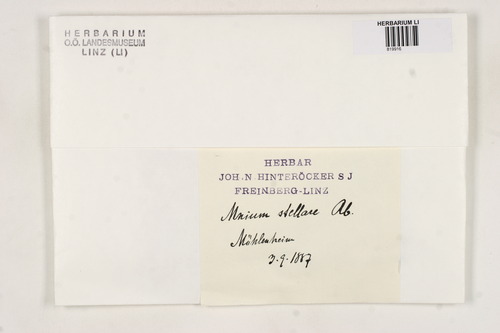 HERBARIUM
O.Ö. LANDESMUSEUM
LINZ (LI)
HERBARIUM LI
HERBAR
JOH. N. HINTERÖCKER S J
FREINBERG-LINZ
Mnium stellare Ab.
Mühlenheim
3.9.1887